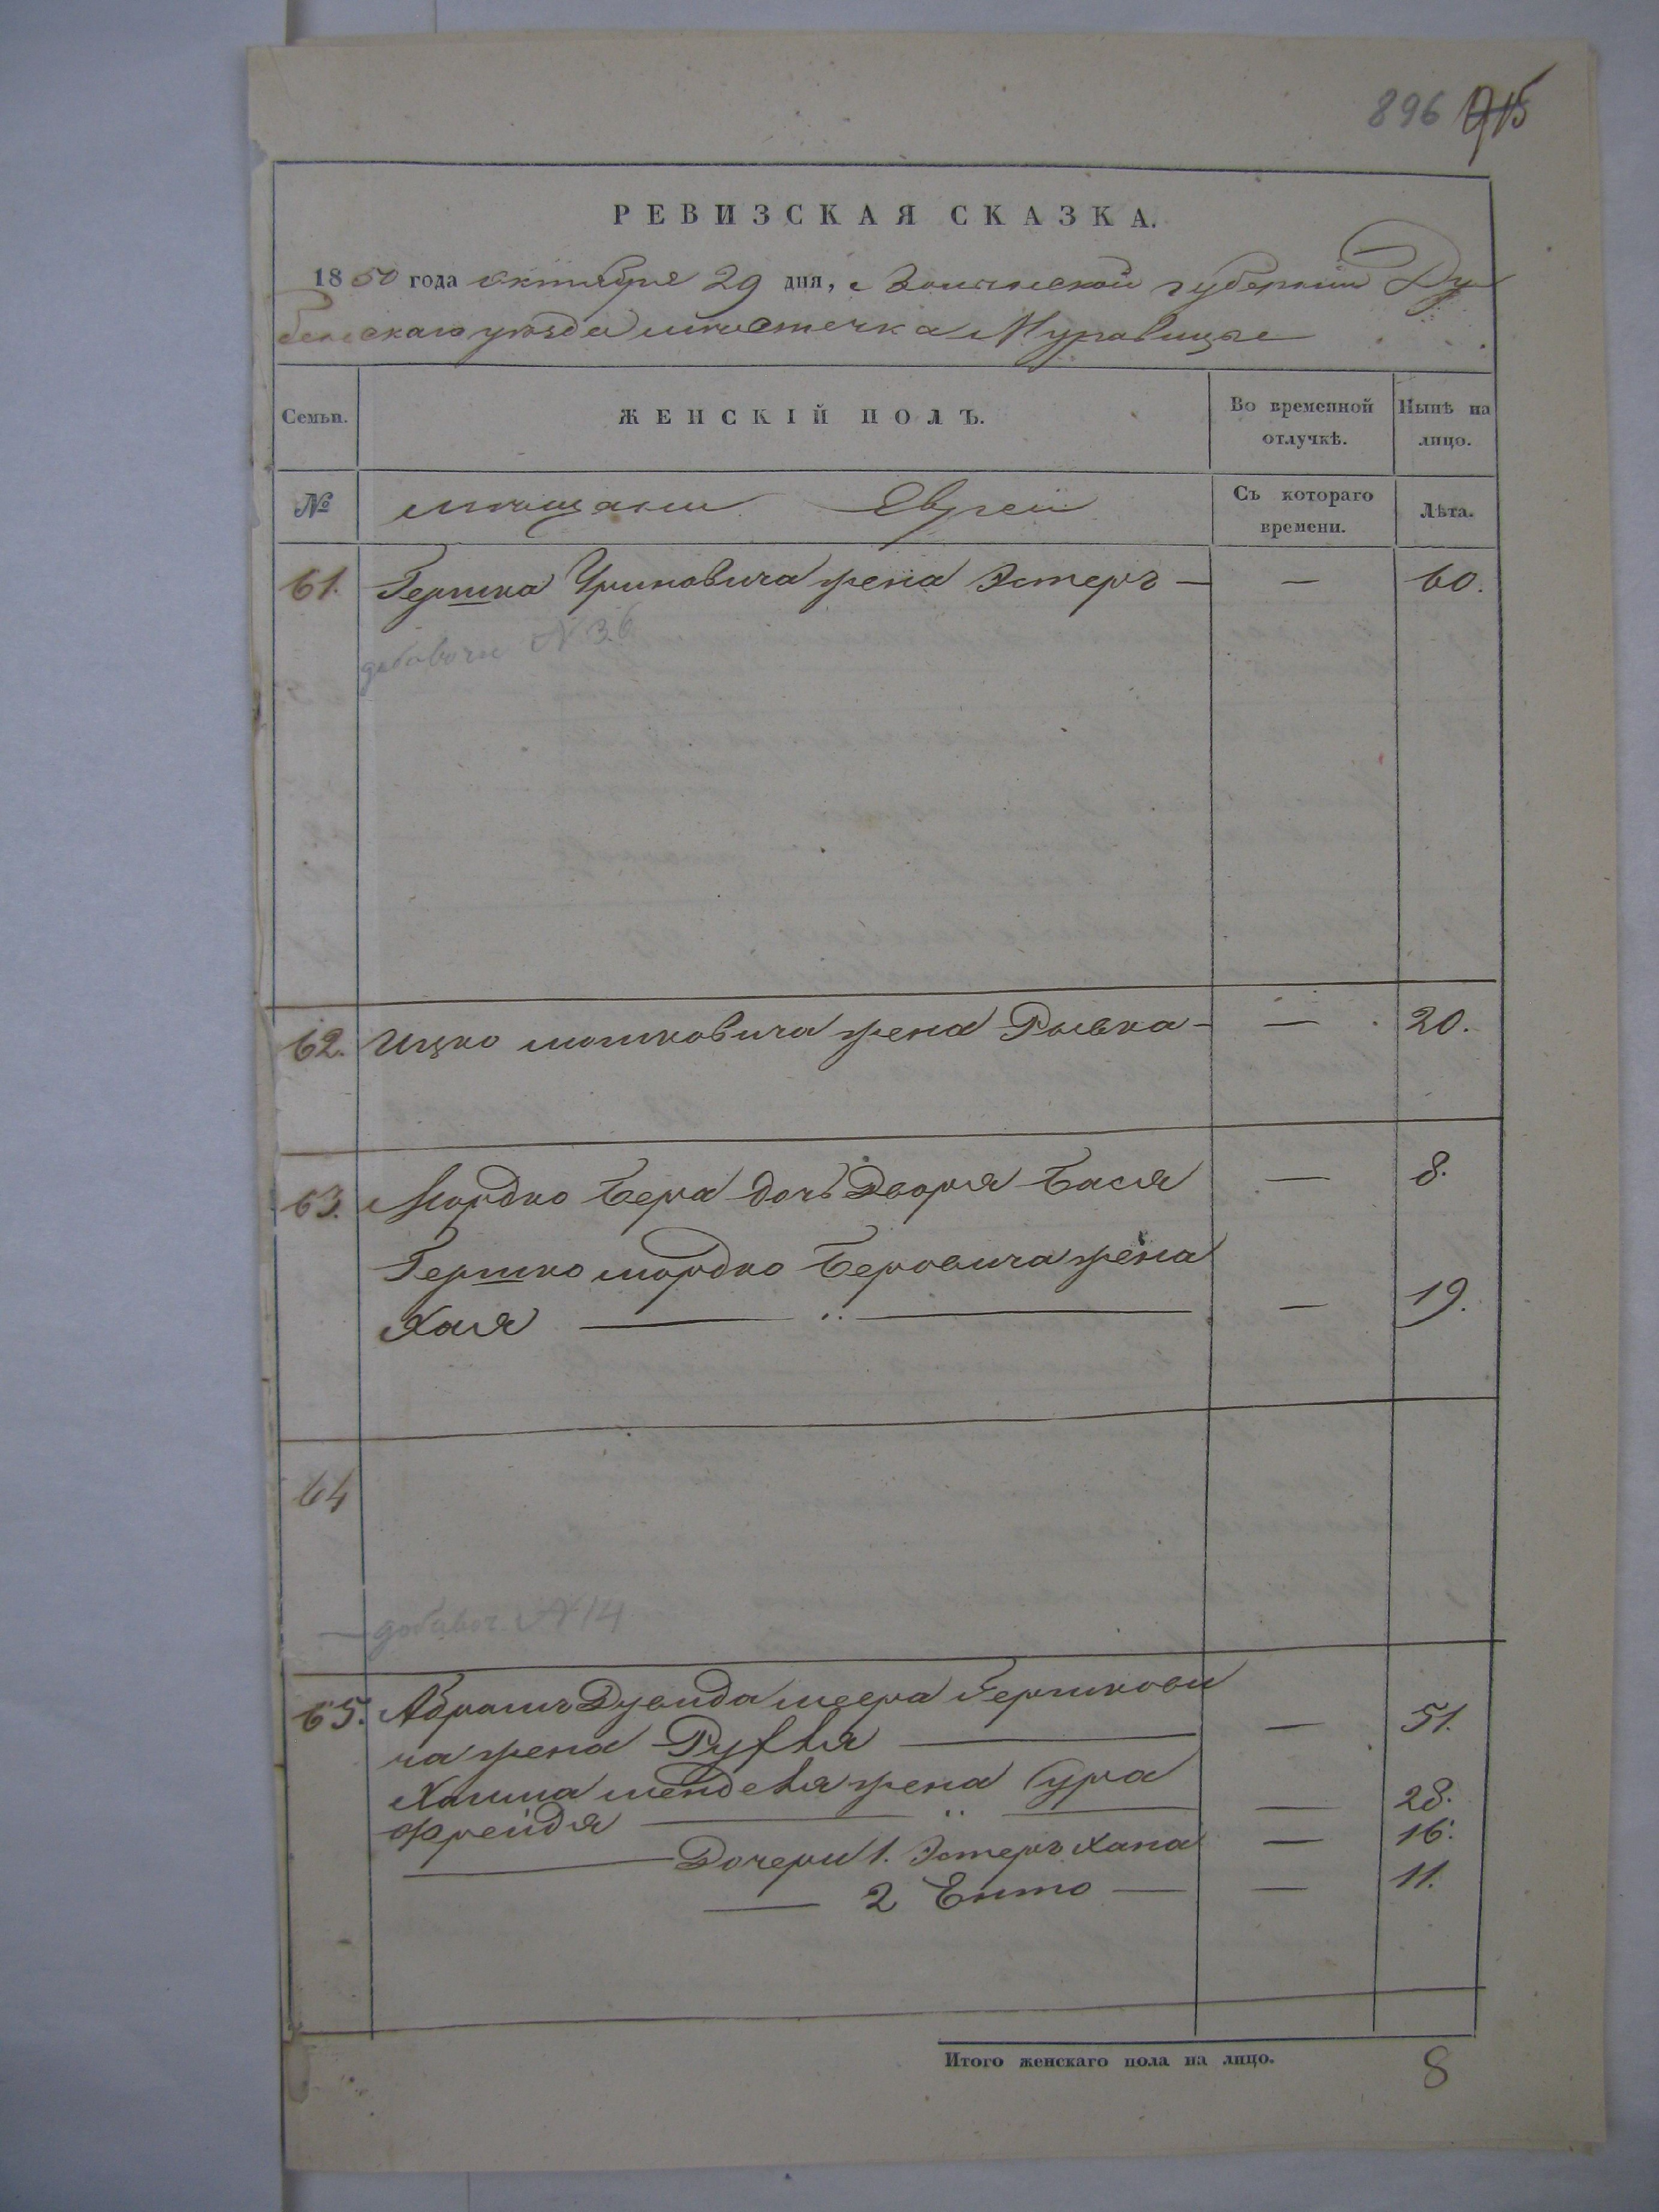 896 915
РЕВИЗСКАЯ СКАЗКА.
1850 года октября 29 дня, Волынской губернии Ду
бенскаго уѣзда мѣстечка Муравицы
Семьи. ЖЕНСКІЙ ПОЛЪ. Во временной отлучкѣ. Нынѣ на лицо.
№ мѣщане Евреи Съ котораго времени. Лѣта.
61. Гершка Уриновича жена Эстеръ — — 60.
добавочн N 36
62. Ицко Мошковича жена Рывка — — 20.
63. Мордко Бера дочь Дворя Бася — 8.
Гершко Мордко Беровича жена
Хая — — 19.
64
добавоч. N 14
65. Абрамъ Дувида Меера Гершкови
ча жена Рухля — — 51.
Хаима Менделя жена Сура
Фрейдя — — 28.
Дочери 1. Эстеръ Хана — 16.
2 Енто — — 11.
Итого женскаго пола на лицо. 8